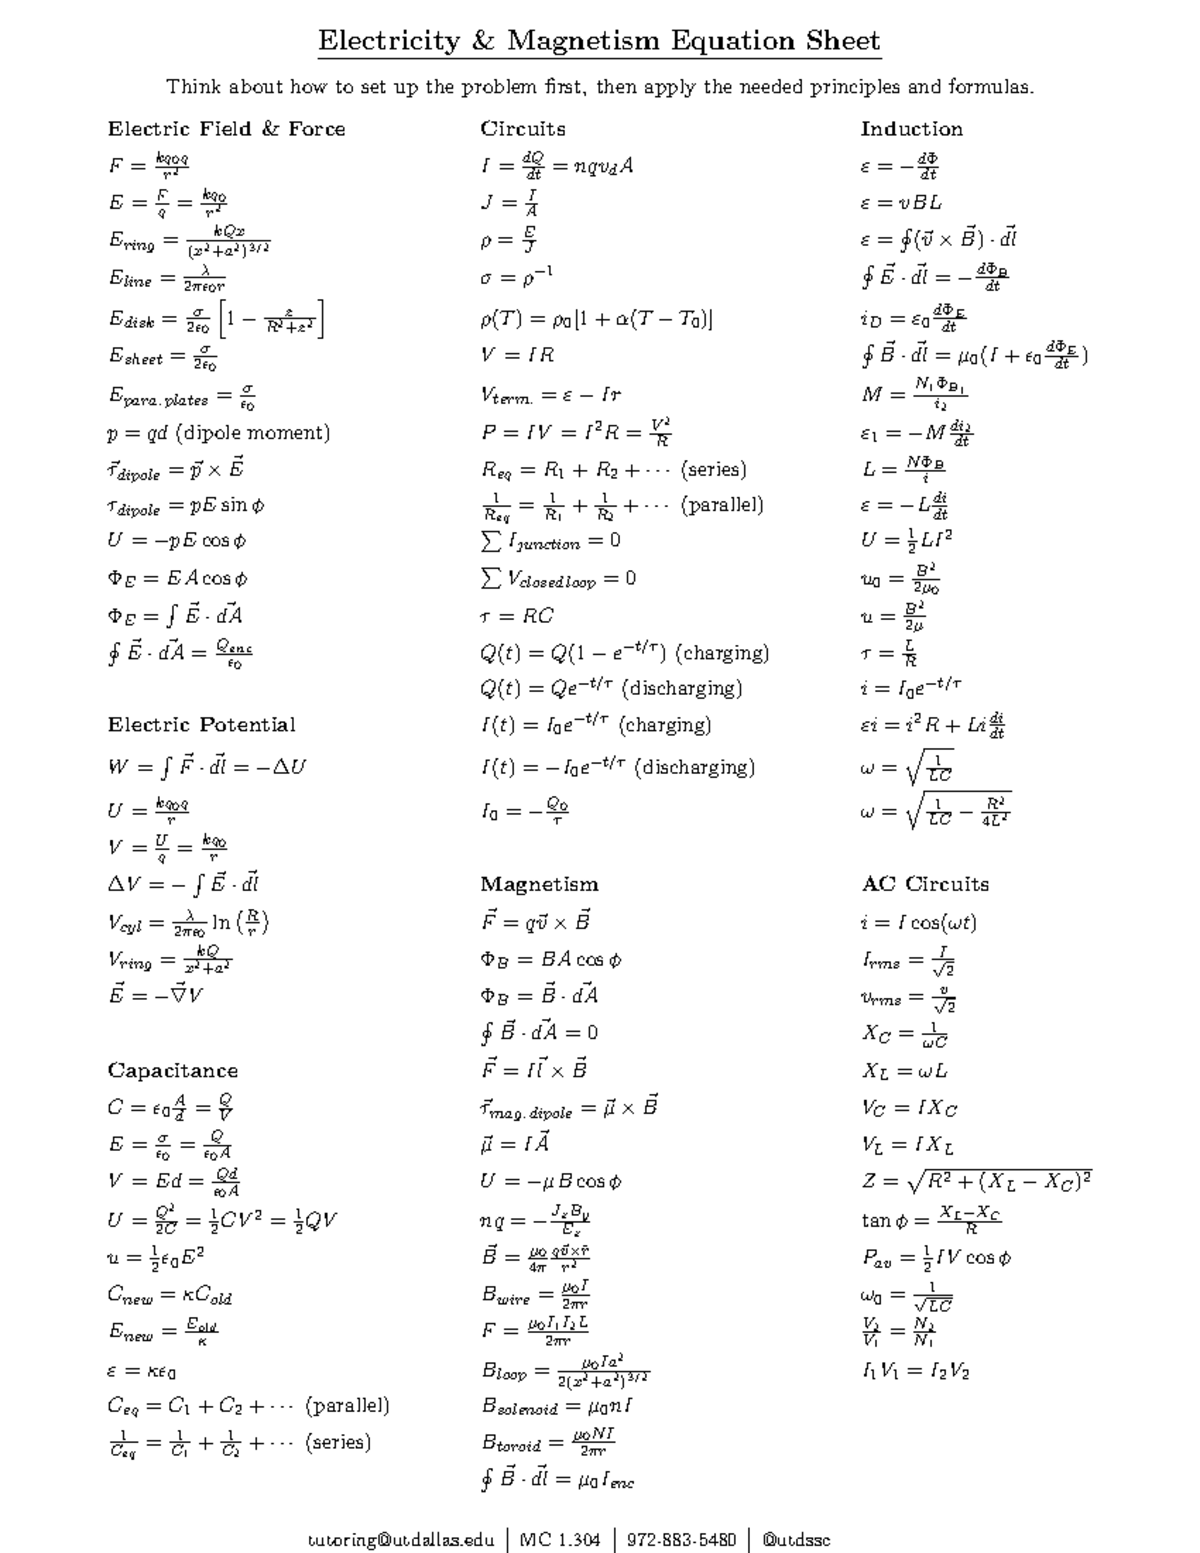 Electricity & Magnetism Equation Sheet
Think about how to set up the problem first, then apply the needed principles and formulas.
Electric Field & Force
F = \frac{kq_0q}{r^2}
E = \frac{F}{q} = \frac{kq_0}{r^2}
E_{ring} = \frac{kQx}{(x^2+a^2)^{3/2}}
E_{line} = \frac{λ}{2πϵ_0r}
E_{disk} = \frac{σ}{2ϵ_0} [1 − \frac{z}{R^2+z^2}]
E_{sheet} = \frac{σ}{2ϵ_0}
E_{para.plates} = \frac{σ}{ϵ_0}
p = qd (dipole moment)
\vec{τ}_{dipole} = \vec{p} × \vec{E}
τ_{dipole} = pE sin ϕ
U = −pE cos ϕ
Φ_E = EA cos ϕ
Φ_E = ∫ \vec{E} · \vec{dA}
∮ \vec{E} · \vec{dA} = \frac{Q_{enc}}{ϵ_0}
Electric Potential
W = ∫ \vec{F} · \vec{dl} = −ΔU
U = \frac{kq_0q}{r}
V = \frac{U}{q} = \frac{kq_0}{r}
ΔV = − ∫ \vec{E} · \vec{dl}
V_{cyl} = \frac{λ}{2πϵ_0} ln (\frac{R}{r})
V_{ring} = \frac{kQ}{x^2+a^2}
\vec{E} = −\vec{∇}V
Capacitance
C = ϵ_0\frac{A}{d} = \frac{Q}{V}
E = \frac{σ}{ϵ_0} = \frac{Q}{ϵ_0A}
V = Ed = \frac{Qd}{ϵ_0A}
U = \frac{Q^2}{2C} = \frac{1}{2}CV^2 = \frac{1}{2}QV
u = \frac{1}{2}ϵ_0E^2
C_{new} = κC_{old}
E_{new} = \frac{E_{old}}{κ}
ε = κϵ_0
C_{eq} = C_1 + C_2 + ⋯ (parallel)
\frac{1}{C_{eq}} = \frac{1}{C_1} + \frac{1}{C_2} + ⋯ (series)
Circuits
I = \frac{dQ}{dt} = nqv_dA
J = \frac{I}{A}
ρ = \frac{E}{J}
σ = ρ^{−1}
ρ(T) = ρ_0[1 + α(T − T_0)]
V = IR
V_{term.} = ε − Ir
P = IV = I^2R = \frac{V^2}{R}
R_{eq} = R_1 + R_2 + ⋯ (series)
\frac{1}{R_{eq}} = \frac{1}{R_1} + \frac{1}{R_2} + ⋯ (parallel)
∑ I_{junction} = 0
∑ V_{closedloop} = 0
τ = RC
Q(t) = Q(1 − e^{−t/τ}) (charging)
Q(t) = Qe^{−t/τ} (discharging)
I(t) = I_0e^{−t/τ} (charging)
I(t) = −I_0e^{−t/τ} (discharging)
I_0 = −\frac{Q_0}{τ}
Magnetism
\vec{F} = q\vec{v} × \vec{B}
Φ_B = BA cos ϕ
Φ_B = \vec{B} · \vec{dA}
∮ \vec{B} · \vec{dA} = 0
\vec{F} = I\vec{l} × \vec{B}
\vec{τ}_{mag.dipole} = \vec{μ} × \vec{B}
\vec{μ} = I\vec{A}
U = −μB cos ϕ
nq = −\frac{J_xB_y}{E_z}
\vec{B} = \frac{μ_0}{4π} \frac{q\vec{v}×\hat{r}}{r^2}
B_{wire} = \frac{μ_0I}{2πr}
F = \frac{μ_0I_1I_2L}{2πr}
B_{loop} = \frac{μ_0Ia^2}{2(x^2+a^2)^{3/2}}
B_{solenoid} = μ_0nI
B_{toroid} = \frac{μ_0NI}{2πr}
∮ \vec{B} · \vec{dl} = μ_0I_{enc}
Induction
ε = −\frac{dΦ}{dt}
ε = vBL
ε = ∮(\vec{v} × \vec{B}) · \vec{dl}
∮ \vec{E} · \vec{dl} = −\frac{dΦ_B}{dt}
i_D = ε_0\frac{dΦ_E}{dt}
∮ \vec{B} · \vec{dl} = μ_0(I + ϵ_0\frac{dΦ_E}{dt})
M = \frac{N_1Φ_{B_1}}{i_2}
ε_1 = −M\frac{di_2}{dt}
L = \frac{NΦ_B}{i}
ε = −L\frac{di}{dt}
U = \frac{1}{2}LI^2
u_0 = \frac{B^2}{2μ_0}
u = \frac{B^2}{2μ}
τ = \frac{L}{R}
i = I_0e^{−t/τ}
εi = i^2R + Li\frac{di}{dt}
ω = \sqrt{\frac{1}{LC}}
ω = \sqrt{\frac{1}{LC} − \frac{R^2}{4L^2}}
AC Circuits
i = I cos(ωt)
I_{rms} = \frac{I}{\sqrt{2}}
v_{rms} = \frac{v}{\sqrt{2}}
X_C = \frac{1}{ωC}
X_L = ωL
V_C = IX_C
V_L = IX_L
Z = \sqrt{R^2 + (X_L − X_C)^2}
tan ϕ = \frac{X_L−X_C}{R}
P_{av} = \frac{1}{2}IV cos ϕ
ω_0 = \frac{1}{\sqrt{LC}}
\frac{V_2}{V_1} = \frac{N_2}{N_1}
I_1V_1 = I_2V_2
tutoring@utdallas.edu | MC 1.304 | 972-883-5480 | @utdssc